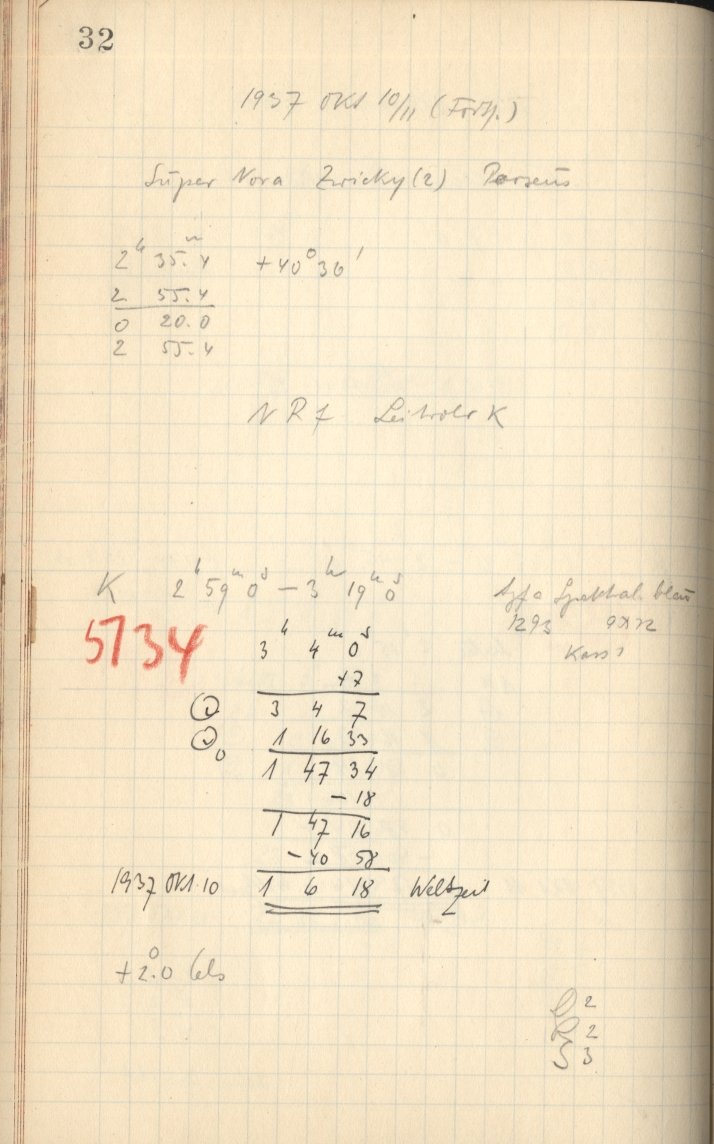 32
1937 Okt 10/11 (Forts.)
Super Nova Zwicky (2) Perseus
2ʰ 35.4ᵐ +40° 36'
2 55.4
0 20.0
2 55.4
N R 7 K
K 2ʰ 59ᵐ 0ˢ – 3ʰ 19ᵐ 0ˢ
Agfa Spektral blau
1293 9x12
5734
3ʰ 4ᵐ 0ˢ
+7
3 4 7
1 16 33
1 47 34
– 18
1 47 16
– 40 58
1937 Okt. 10 1 6 18 Weltzeit
+2.°0 Cels
2
2
S 3